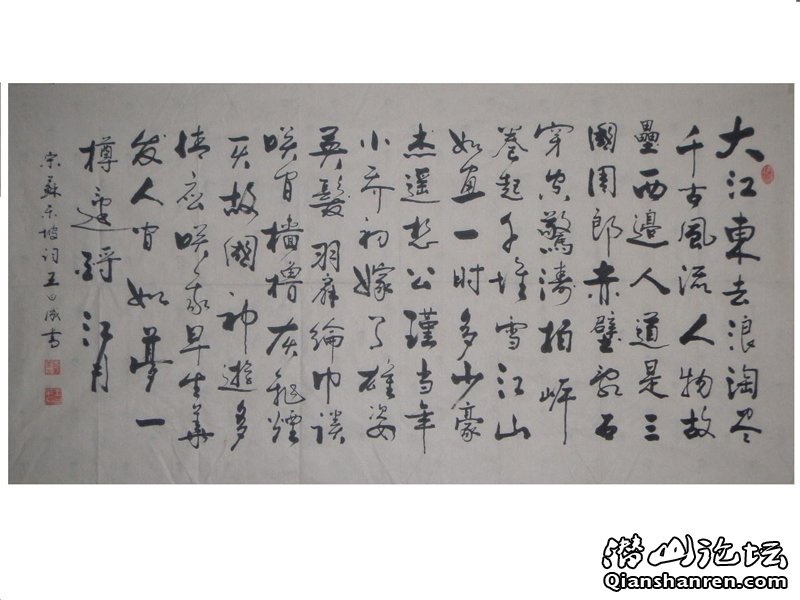 大江東去浪淘尽
千古風流人物故
壘西邊人道是三
國周郎赤壁亂石
穿空驚濤拍岸
卷起千堆雪江山
如画一时多少豪
杰遥想公瑾当年
小乔初嫁了雄姿
英發羽扇綸巾談
咲間檣櫓灰飛煙
灭故國神遊多
情应咲我早生華
发人间如夢一
樽還酹江月
宋苏东坡词王曰成书
潜山论坛
Qianshanren.com